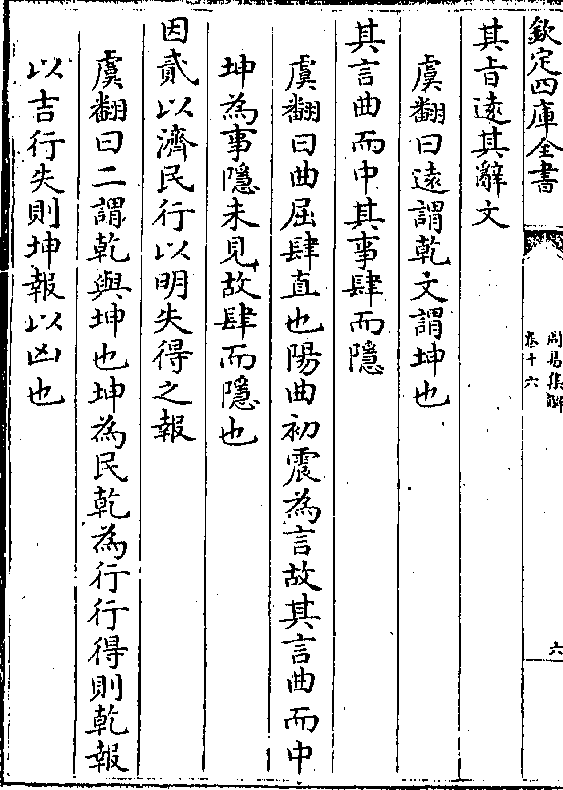 欽定四庫全書
周易集解
卷十六
六
其㫖逺其辭文
虞翻曰逺謂乾文謂坤也
其言曲而中其事肆而隱
虞翻曰曲屈肆直也陽曲初震為言故其言曲而中
坤為事隱未見故肆而隱也
因貳以濟民行以明失得之報
虞翻曰二謂乾與坤也坤為民乾為行行得則乾報
以吉行失則坤報以凶也